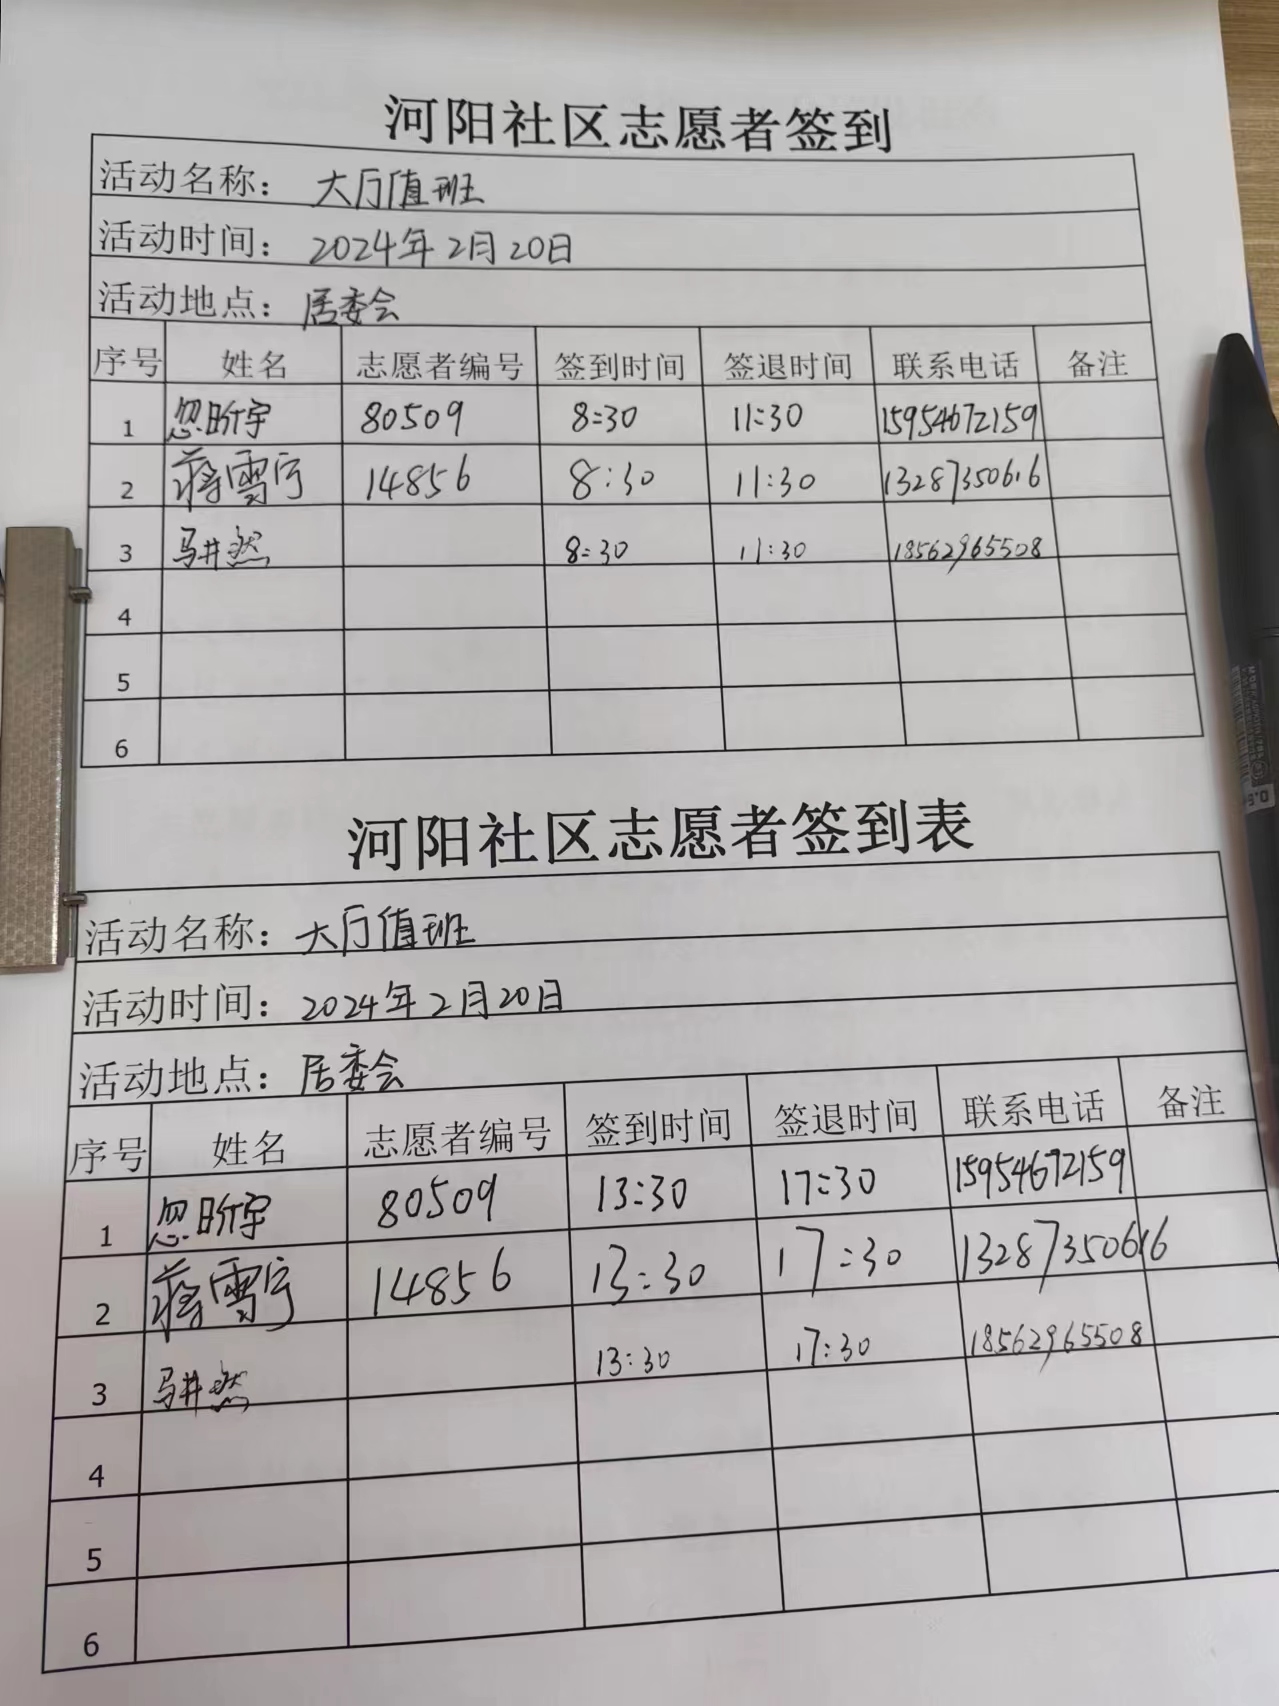 河阳社区志愿者签到
活动名称： 大厅值班
活动时间： 2024年2月20日
活动地点： 居委会
序号 姓名 志愿者编号 签到时间 签退时间 联系电话 备注
1 忽昕宇 80509 8:30 11:30 15954672159
2 蒋雪宁 14856 8:30 11:30 13287350616
3 马井然 8:30 11:30 18562965508
4
5
6
河阳社区志愿者签到表
活动名称： 大厅值班
活动时间： 2024年2月20日
活动地点： 居委会
序号 姓名 志愿者编号 签到时间 签退时间 联系电话 备注
1 忽昕宇 80509 13:30 17:30 15954672159
2 蒋雪宁 14856 13:30 17:30 13287350616
3 马井然 13:30 17:30 18562965508
4
5
6